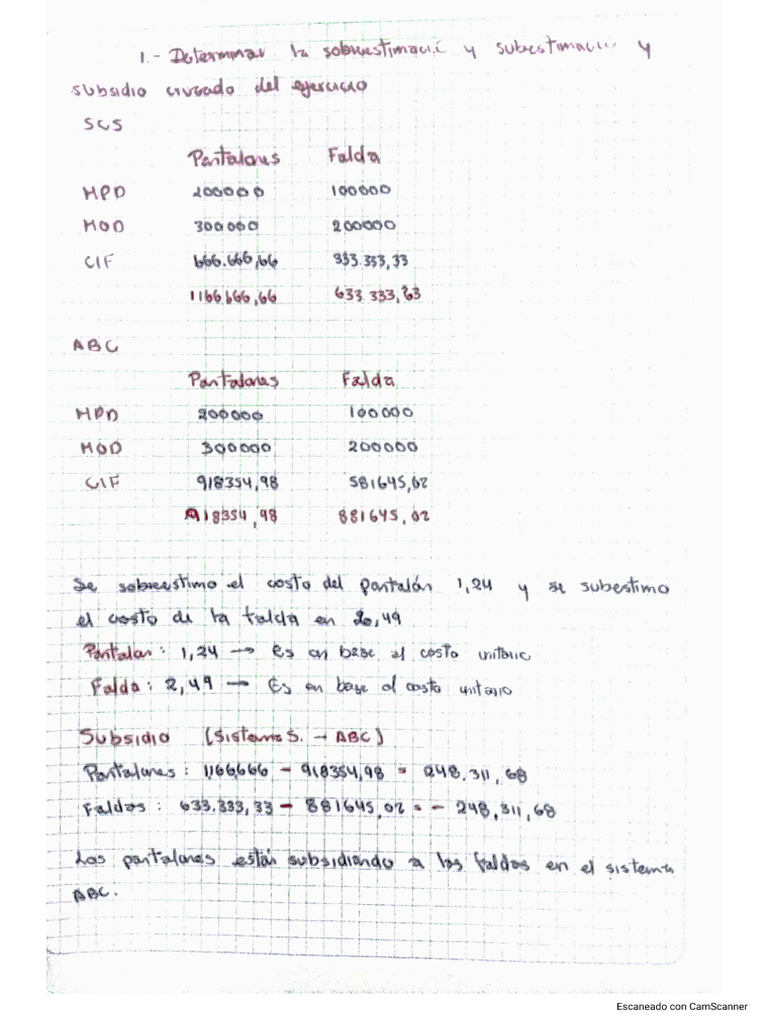 1.- Determinar la sobreestimació y subestimació y
subsidio cruzado del ejercicio
SCS
Pantalones Falda
MPD 200000 100000
MOD 300000 200000
CIF 666.666,66 333.333,33
1166.666,66 633.333,33
ABC
Pantalones Falda
MPD 200000 100000
MOD 300000 200000
CIF 918354,98 581645,02
918354,98 881645,02
Se sobreestimo el costo del pantalón 1,24 y se subestimo
el costo de la falda en ,49
Pantalon: 1,24 → Es en base al costo unitario
Falda: 2,49 → Es en base al costo unitario
Subsidio (Sistema S. → ABC)
Pantalones: 1166666 - 918354,98 = 248.311,68
Faldas: 633.333,33 - 881645,02 = - 248,311,68
Los pantalones están subsidiando a las faldas en el sistema
ABC.
Escaneado con CamScanner